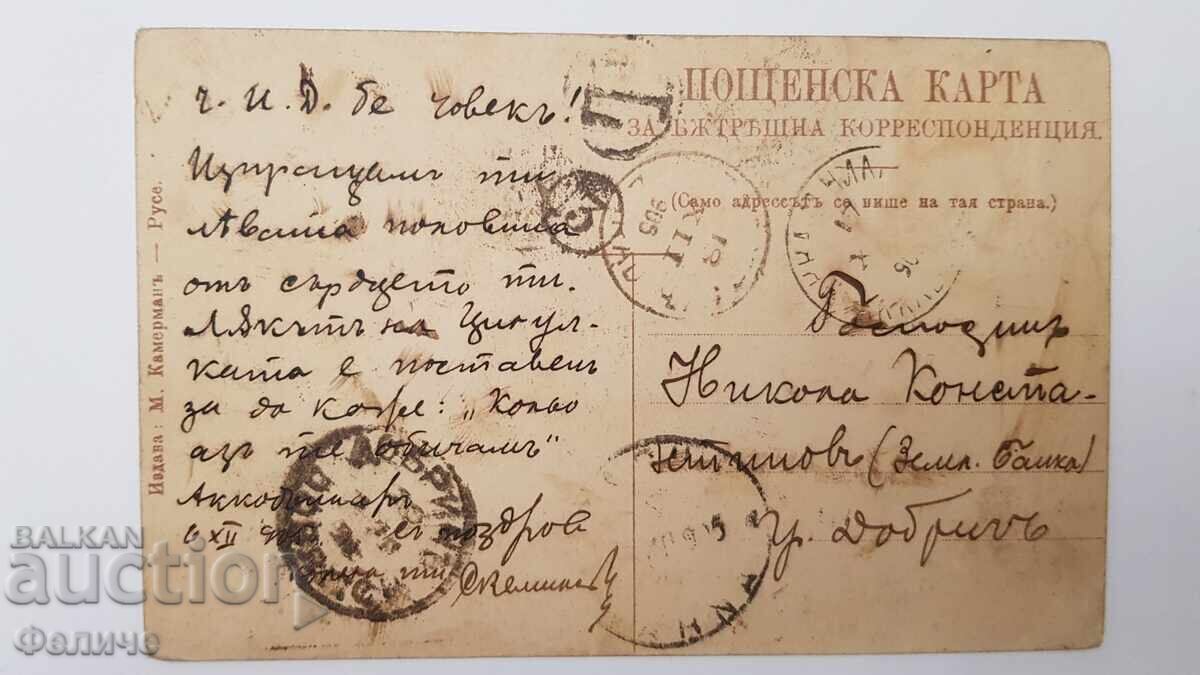 ПОЩЕНСКА КАРТА
ЗА ВѪТРѢШНА КОРРЕСПОНДЕНЦИЯ.
(Само адрессътъ се пише на тая страна.)
Издава: М. Камерманъ — Русе.
г. И. Д. бе човекъ!
Изпращамъ ти
лѣвата половина
отъ сърдцето ти.
Лѫкътъ на Цигул-
ката е поставенъ
за да каже: „Кольо
азъ те обичамъ"
Аккодунаръ
6 XII поздрав
ти
Господинъ
Никола Конста-
нтиновъ (Земл. Банка)
гр. Добричъ
18 XII 905
BALKAN
auction
Феличе